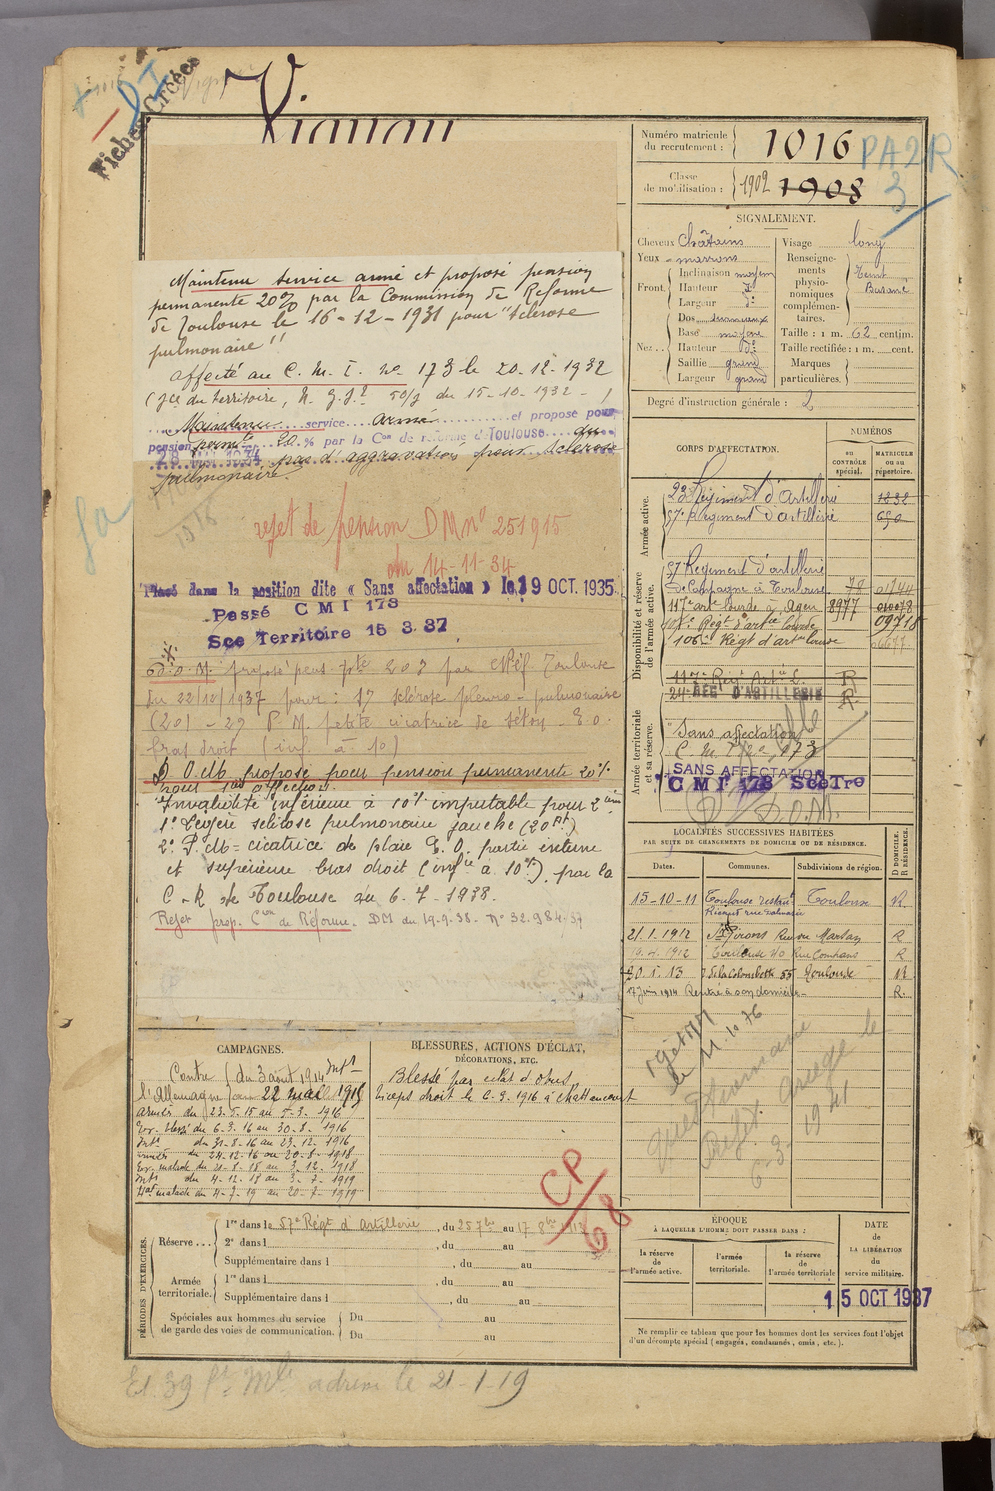 Fiches Créées
Numéro matricule
du recrutement :
1016
PA2R
3
Classe
de mobilisation :
1902 1908
SIGNALEMENT.
Cheveux Châtains
Yeux marrons
Front. Inclinaison moyen
Hauteur
Largeur
Nez .. Dos
Base moyen
Hauteur
Saillie grand
Largeur grand
Visage long
Renseigne-
ments
physio-
nomiques
complémen-
taires.
Teint
Basané
Taille : 1 m. 62 centim.
Taille rectifiée : 1 m. cent.
Marques
particulières.
Degré d'instruction générale : 2
Maintenu service armé et proposé pension
permanente 20% par la Commission de Réforme
de Toulouse le 16-12-1931 pour "sclérose
pulmonaire"
affecté au C. M. I. no 173 le 20-12-1932
(Sce du territoire, du 15-10-1932 )
Maintenu service armé et proposé pour
pension permte 20 % par la Con de réforme d Toulouse du
28 1934 pas d'aggravation pour sclérose
pulmonaire.
rejet de pension DM no 251915
du 14-11-34
Placé dans la position dite « Sans affectation » le 19 OCT. 1935
Passé CMI 173
Sce Territoire 15.3.37
proposé pens. pte 20 % par Toulouse
du 22/12/1937 pour : 1° sclérose pleuro-pulmonaire
(20) - 2° P. M. petite cicatrice de séton E. O.
bras droit (inf. à 10)
proposé pour pension permanente 20%
pour 1ère affection.
Invalidité inférieure à 10% imputable pour 2ème
1° Légère sclérose pulmonaire gauche (20 )
2° cicatrice de plaie E. O. partie interne
et supérieure bras droit (infre à 10%) par la
C. R. de Toulouse du 6-7-1938.
Rejet prop. Con de Réforme. DM du 19-9-38 - N° 32.984
CORPS D'AFFECTATION.
NUMÉROS
au
CONTRÔLE
spécial.
MATRICULE
ou au
répertoire.
Armée active.
Régiment d'Artillerie 1232
57e Régiment d'artillerie 690
Disponibilité et réserve
de l'armée active.
57e Régiment d'artillerie
de Campagne à Toulouse 78 01744
117e artie lourde à Agen 8977
Régt d'artie Lourde 09718
106e Régt d'art lourde
117e Régt Artie L. R
24e REG D'ARTILLERIE R.
Armée territoriale
et sa réserve.
Sans affectation
SANS AFFECTATION
CMI 173 Sce Tre
D.O.M.
LOCALITÉS SUCCESSIVES HABITÉES
PAR SUITE DE CHANGEMENTS DE DOMICILE OU DE RÉSIDENCE.
Dates.
Communes.
Subdivisions de région.
D DOMICILE.
R RÉSIDENCE.
15-10-11 Toulouse Toulouse R
21.1.1912 St Girons R
19.4.1912 Toulouse 40 Rue Compans R
20.1.13 de la Colombette 55 Toulouse R
17 Juin 1914 Rentré à son domicile R.
Questionnaire
Préfet. Ariège le
6-3-1941
CAMPAGNES.
Contre
l'Allemagne
du 3 août 1914 Int
au 22 mai 1915
armées du 23-5-15 au 5-3-1916
Ev. blessé du 6-3-16 au 30-8-1916
Int du 31-8-16 au 23-12-1916
armées du 24-12-16 au 20-8-1918
Ev. malade du 21-8-18 au 3-12-1918
Int du 4-12-18 au 3-7-1919
malade du 4-7-19 au 20-7-1919
BLESSURES, ACTIONS D'ÉCLAT,
DÉCORATIONS, ETC.
Blessé par éclat d'obus,
biceps droit le 6-3-1916 à Chattancourt
CP
68
PÉRIODES D'EXERCICES.
Réserve ... 1re dans le 57e Régt d'Artillerie , du 25 7bre au 17 8bre 1912
2e dans l , du au
Supplémentaire dans l , du au
Armée
territoriale.
1re dans l , du au
Supplémentaire dans l , du au
Spéciales aux hommes du service
de garde des voies de communication.
Du au
Du au
ÉPOQUE
À LAQUELLE L'HOMME DOIT PASSER DANS :
la réserve
de
l'armée active.
l'armée
territoriale.
la réserve
de
l'armée territoriale
DATE
de
LA LIBÉRATION
du
service militaire.
15 OCT 1937
Ne remplir ce tableau que pour les hommes dont les services font l'objet
d'un décompte spécial (engagés, condamnés, omis, etc.).
le 21-1-19